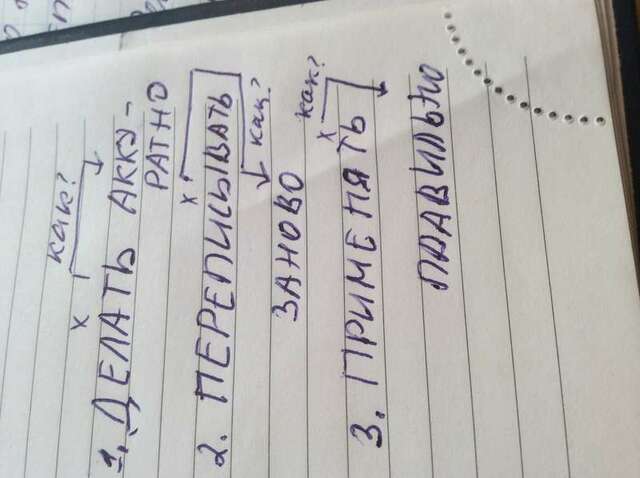 как?
х
1. ДЕЛАТЬ АККУ-
РАТНО
х
2. ПЕРЕПИСЫВАТЬ
как?
ЗАНОВО
как?
х
3. ПРИМЕНЯТЬ
ПРАВИЛЬНО